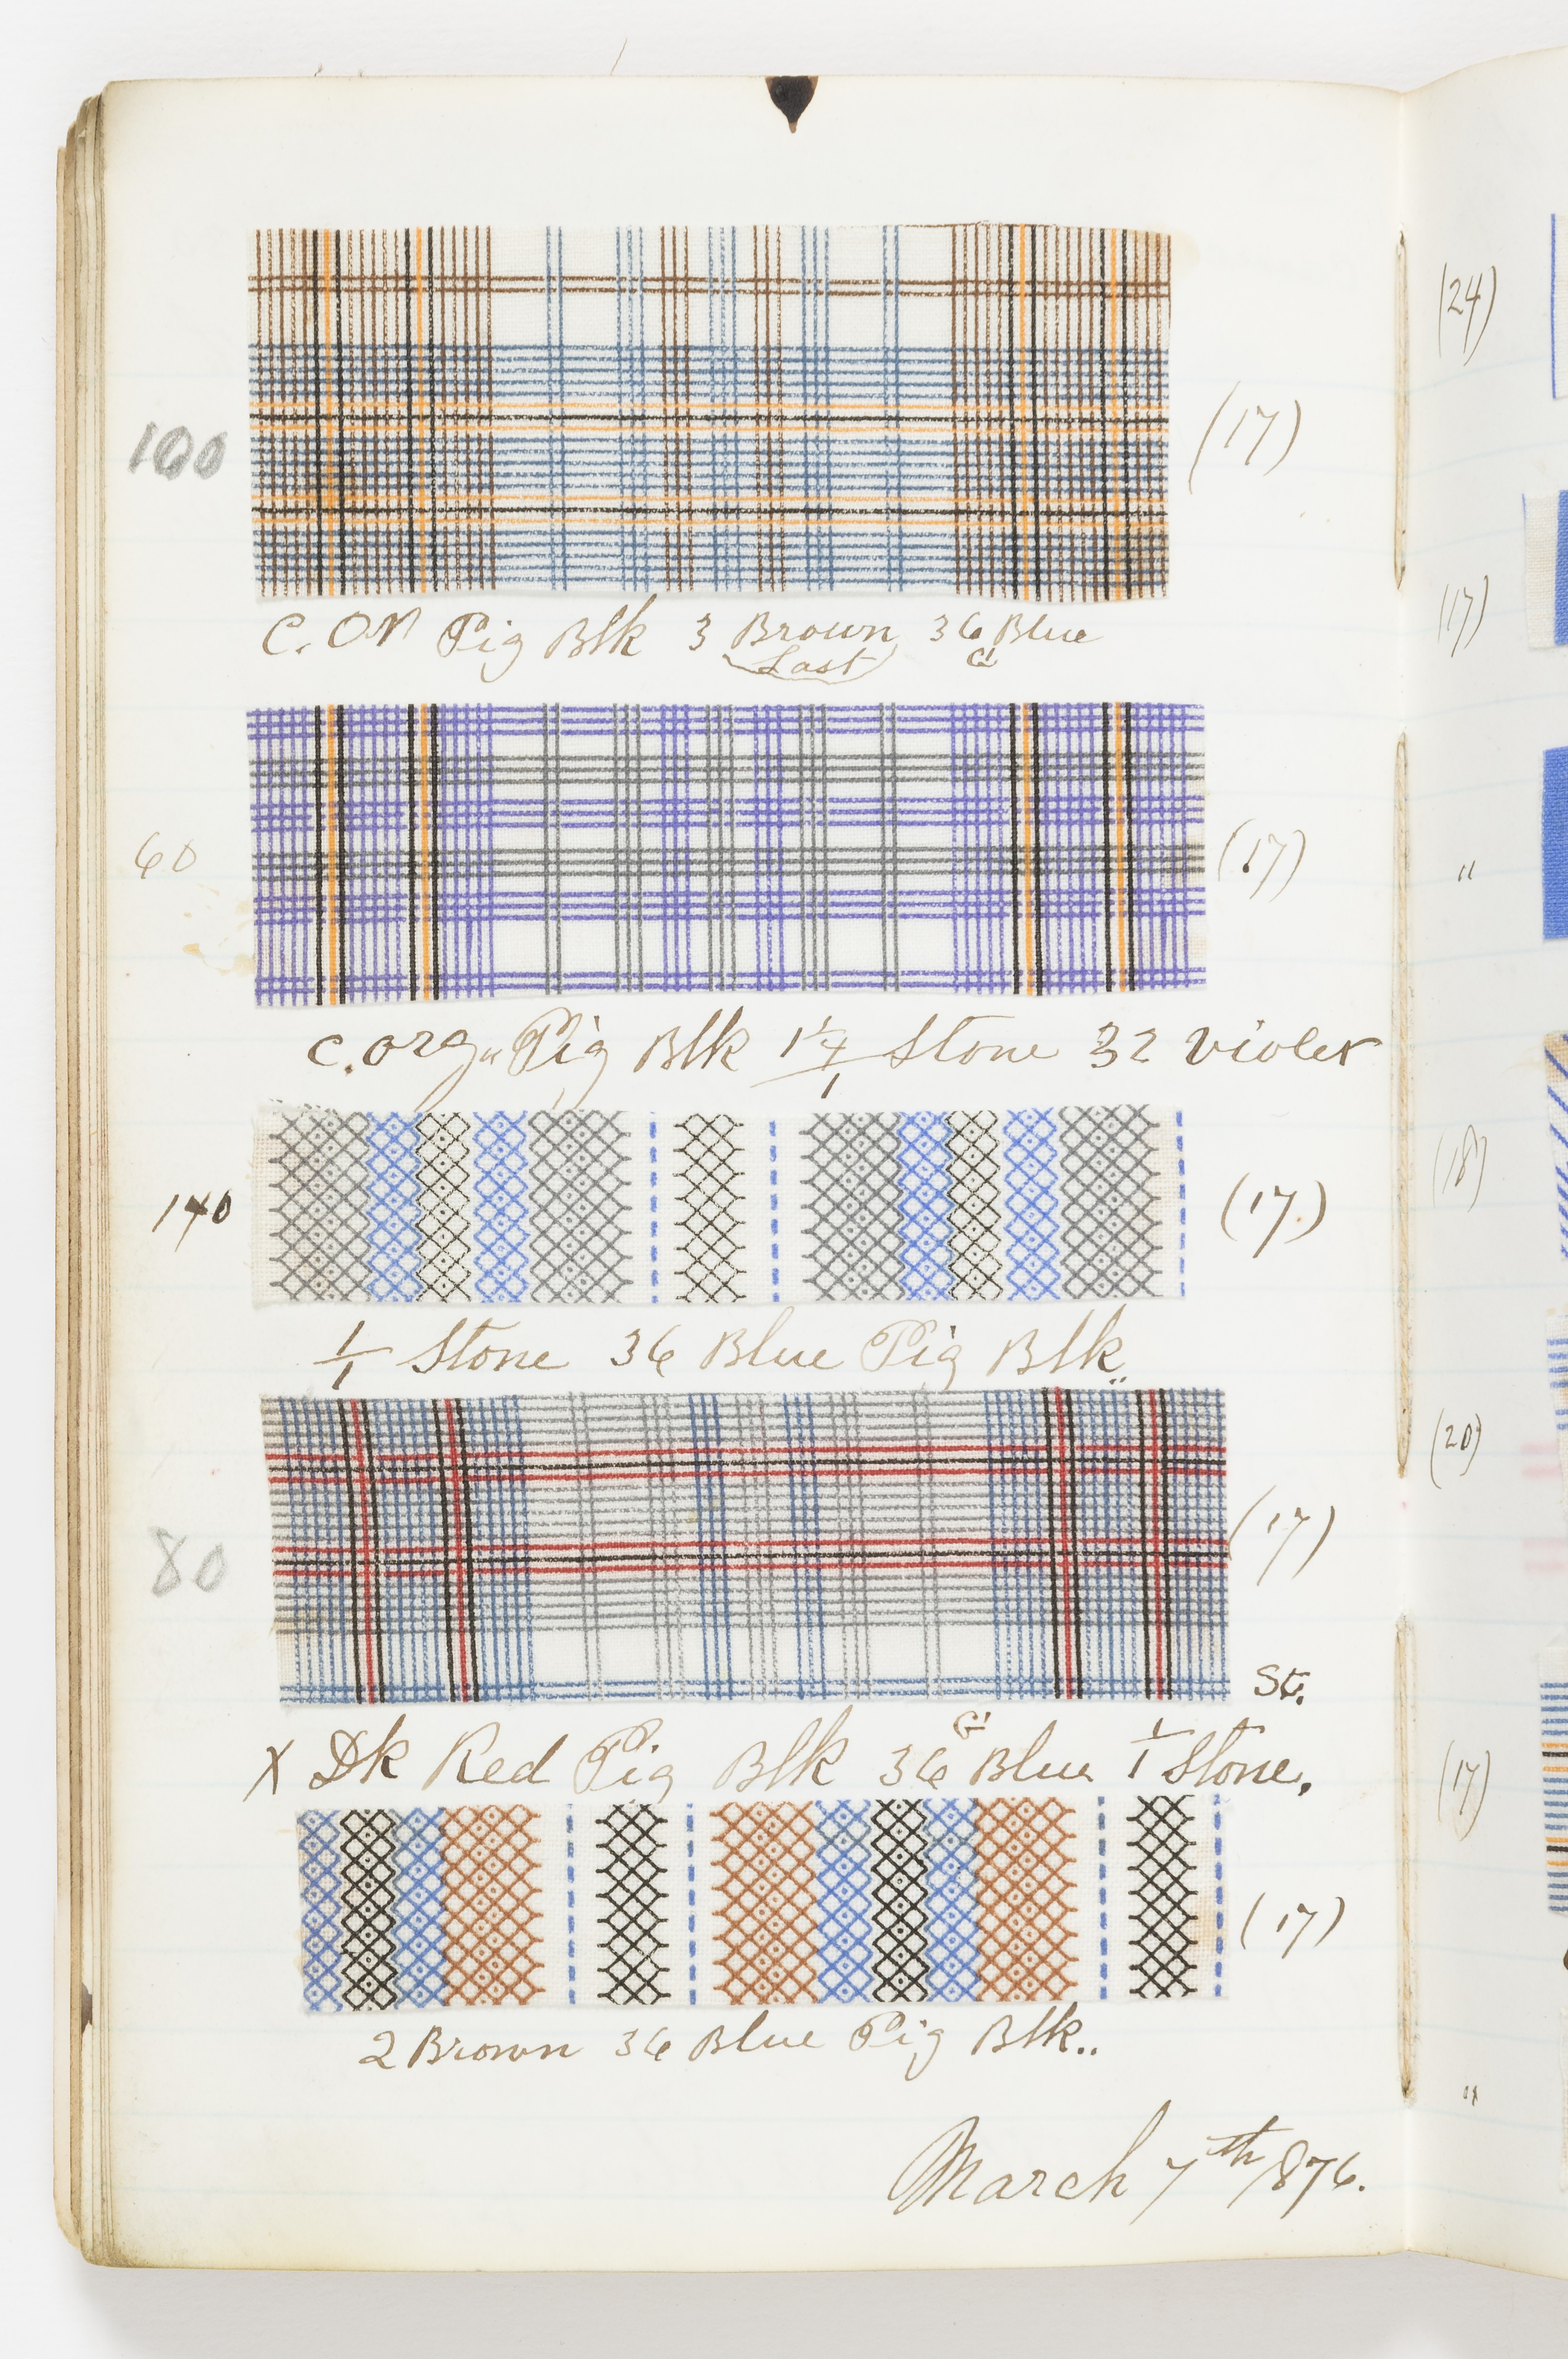 100
(17)
C. Or Pig Blk 3 Brown 36 Blue
Last
60
(17)
C. org. Pig Blk 1 1/4 / 1 Stone 32 Violet
140
(17)
1/1 Stone 36 Blue Pig Blk..
80
(17)
St.
X Dk Red Pig Blk 36 Blue 1/1 Stone.
(17)
2 Brown 36 Blue Pig Blk..
March 7th 1876.
(24)
(17)
"
(18)
(20)
(17)
"